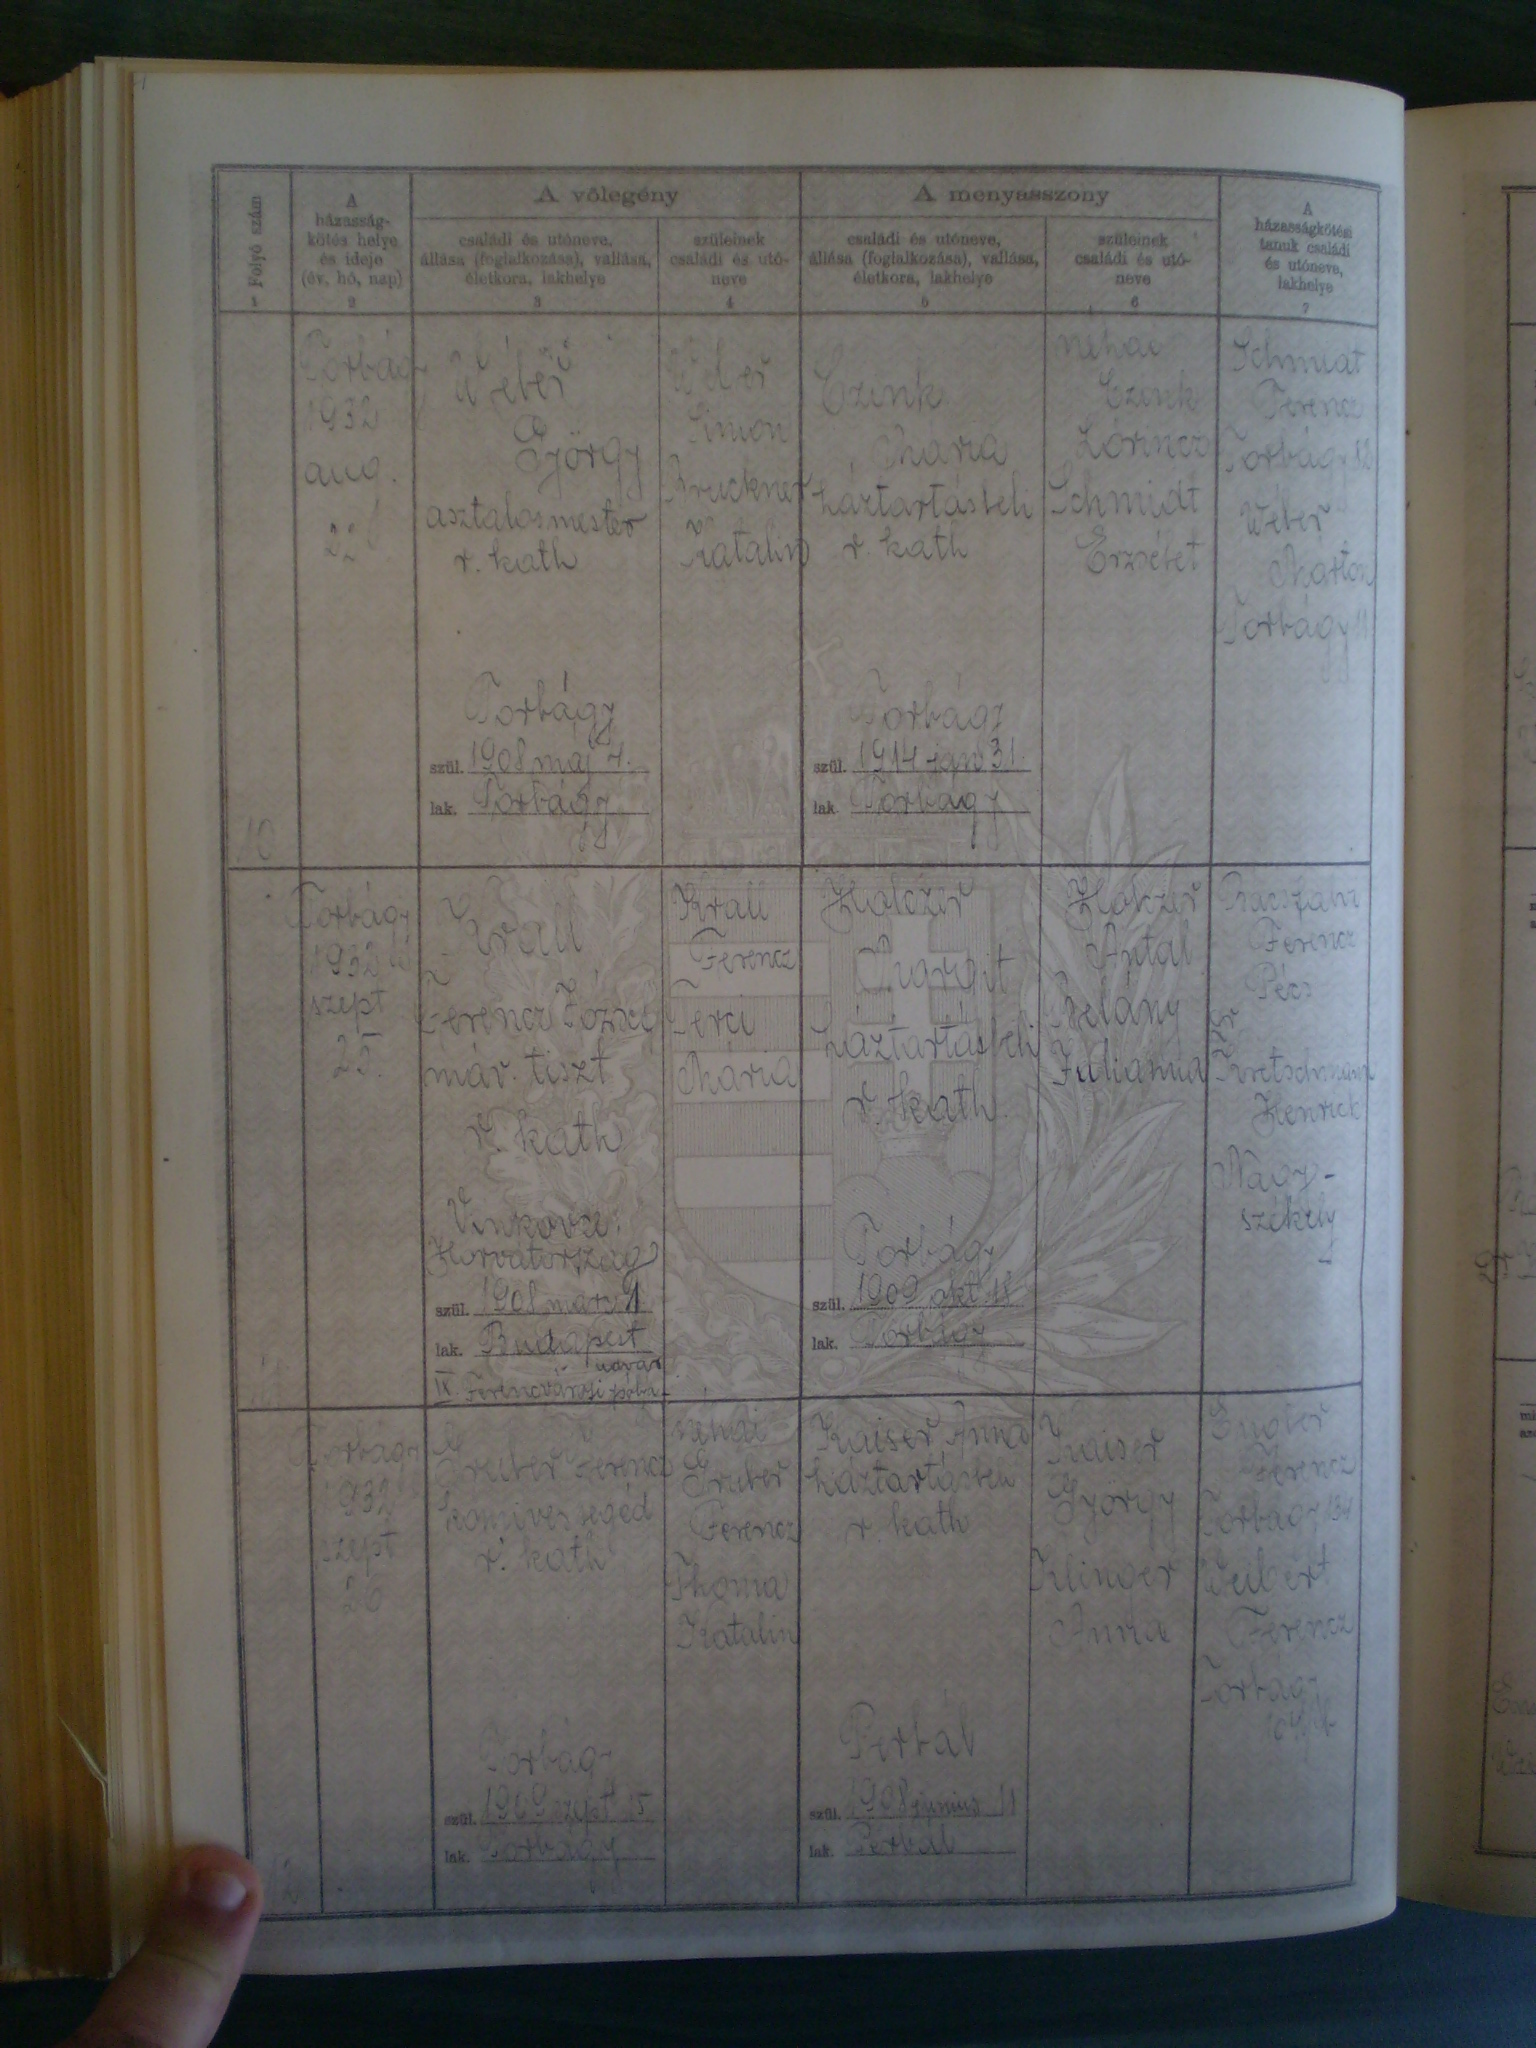 Folyó szám
1
A
házasság-
kötés helye
és ideje
(év, hó, nap)
2
A vőlegény
családi és utóneve,
állása (foglalkozása), vallása,
életkora, lakhelye
3
szüleinek
családi és utó-
neve
4
A menyasszony
családi és utóneve,
állása (foglalkozása), vallása,
életkora, lakhelye
5
szüleinek
családi és utó-
neve
6
A
házasságkötési
tanuk családi
és utóneve,
lakhelye
7
10
Torbágy
1932
aug.
22
Weber
György
asztalosmester
r. kath
Torbágy
szül. 1908 máj 4.
lak. Torbágy
Weber
Simon
Bruckner
Katalin
Czink
Mária
háztartásbeli
r. kath
Torbágy
szül. 1914 jan 31.
lak. Torbágy
néhai
Czink
Lőrincz
Schmidt
Erzsébet
Schmidt
Ferencz
Torbágy
Weber
Márton
Torbágy
11
Torbágy
1932
szept
25.
Krall
Ferencz József
máv. tiszt
r. kath
Vinkovci
Horvátország
szül. 1908 márc 11
lak. Budapest
IX. Ferencvárosi pálya-
udvar
Krall
Ferencz
Ferci
Mária
Holczer
Margit
háztartásbeli
r. kath.
Torbágy
szül. 1909 okt. 18
lak. Torbágy
Holczer
Antal
Julianna
Ferencz
Pécs
Dr
Kretschmann
Henrick
Nagy-
székely
12
Torbágy
1932
szept
26
Gruber Ferencz
kőmives segéd
r. kath
Torbágy
szül. 1909 szept 15
lak. Torbágy
néhai
Gruber
Ferencz
Thoma
Katalin
Kaiser Anna
háztartásbeli
r. kath
Perbál
szül. 1908 junius 11
lak. Perbál
Kaiser
György
Klinger
Anna
Ferencz
Torbágy 134
Ferencz
Torbágy